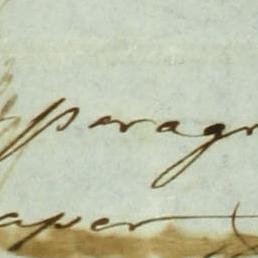 paragr
aper